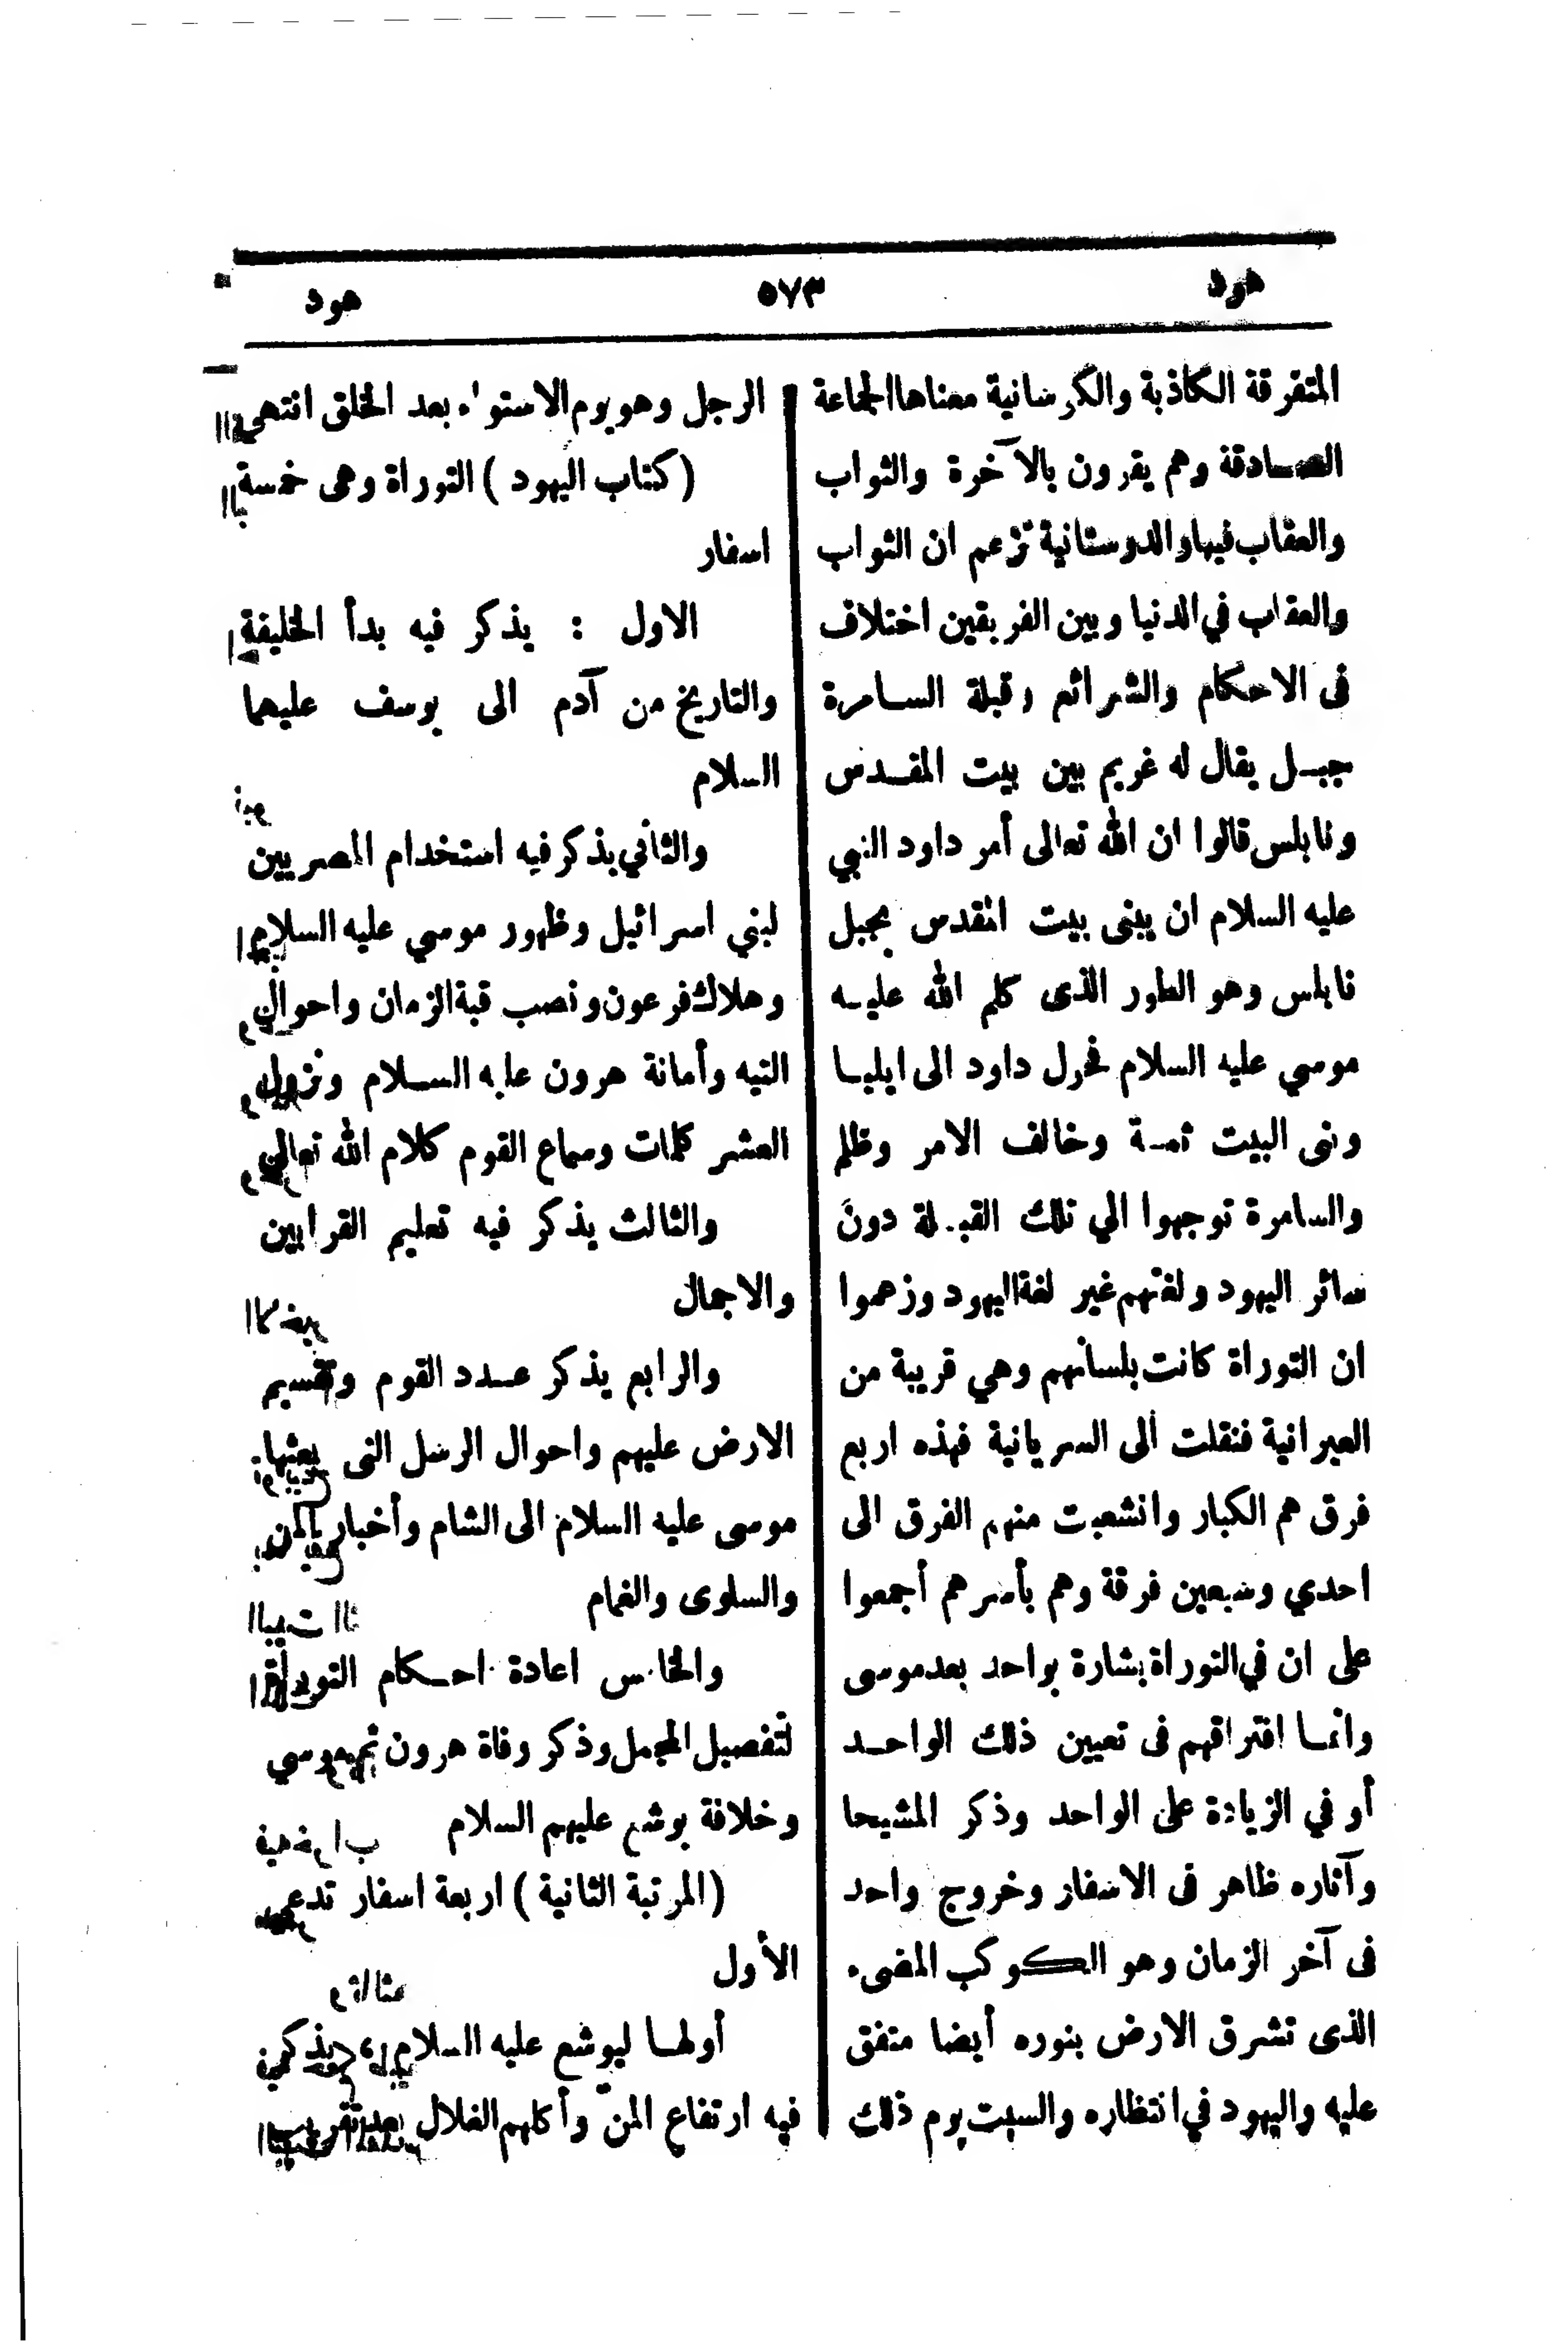 هود
٥٧٣
هود
المتفرقة الكاذبة والكرسانية معناها الجماعة
الصادقة وهم يقرون بالآخرة والثواب
والعقاب فيها والدوستانية تزعم ان الثواب
والعقاب في الدنيا وبين الفريقين اختلاف
فى الاحكام والشرائع وقبلة السامرة
جبل يقال له غريم بين بيت المقدس
ونابلس قالوا ان الله تعالى أمر داود النبي
عليه السلام ان يبنى بيت المقدس بجبل
نابلس وهو الطور الذى كلم الله عليه
موسي عليه السلام فحول داود الى ايليا
وبنى البيت ثمة وخالف الامر وظلم
والسامرة توجهوا الي تلك القبلة دون
سائر اليهود ولغتهم غير لغة اليهود وزعموا
ان التوراة كانت بلسانهم وهي قريبة من
العبرانية فنقلت الى السريانية فهذه اربع
فرق هم الكبار وانشعبت منهم الفرق الى
احدي وسبعين فرقة وهم بأسرهم أجمعوا
على ان في التوراة بشارة بواحد بعد موسى
وانما افتراقهم فى تعيين ذلك الواحد
أو في الزيادة على الواحد وذكر المشيحا
وآثاره ظاهر فى الاسفار وخروج واحد
فى آخر الزمان وهو الكوكب المضىء
الذى تشرق الارض بنوره أيضا متفق
عليه واليهود في انتظاره والسبت يوم ذلك
الرجل وهو يوم الاستواء بعد الخلق انتهى
(كتاب اليهود) التوراة وهى خمسة
اسفار
الاول : يذكر فيه بدأ الخليفة
والتاريخ من آدم الى يوسف عليهما
السلام
والثاني يذكر فيه استخدام المصريين
لبني اسرائيل وظهور موسي عليه السلام
وهلاك فرعون ونصب قبة الزمان واحوال
التيه وأمانة هرون عليه السلام ونزول
العشر كلمات وسماع القوم كلام الله تعالى
والثالث يذكر فيه تعليم القرابين
والاجمال
والرابع يذكر عدد القوم وتقسيم
الارض عليهم واحوال الرسل التى بعثها
موسى عليه السلام الى الشام وأخبار المن
والسلوى والغمام
والخامس اعادة احكام التوراة
لتفصيل المجمل وذكر وفاة هرون ثم موسي
وخلافة يوشع عليهم السلام
(المرتبة الثانية) اربعة اسفار تدعى
الأول
أولها ليوشع عليه السلام يذكر
فيه ارتفاع المن وأكلهم الغلال بعد تقريب